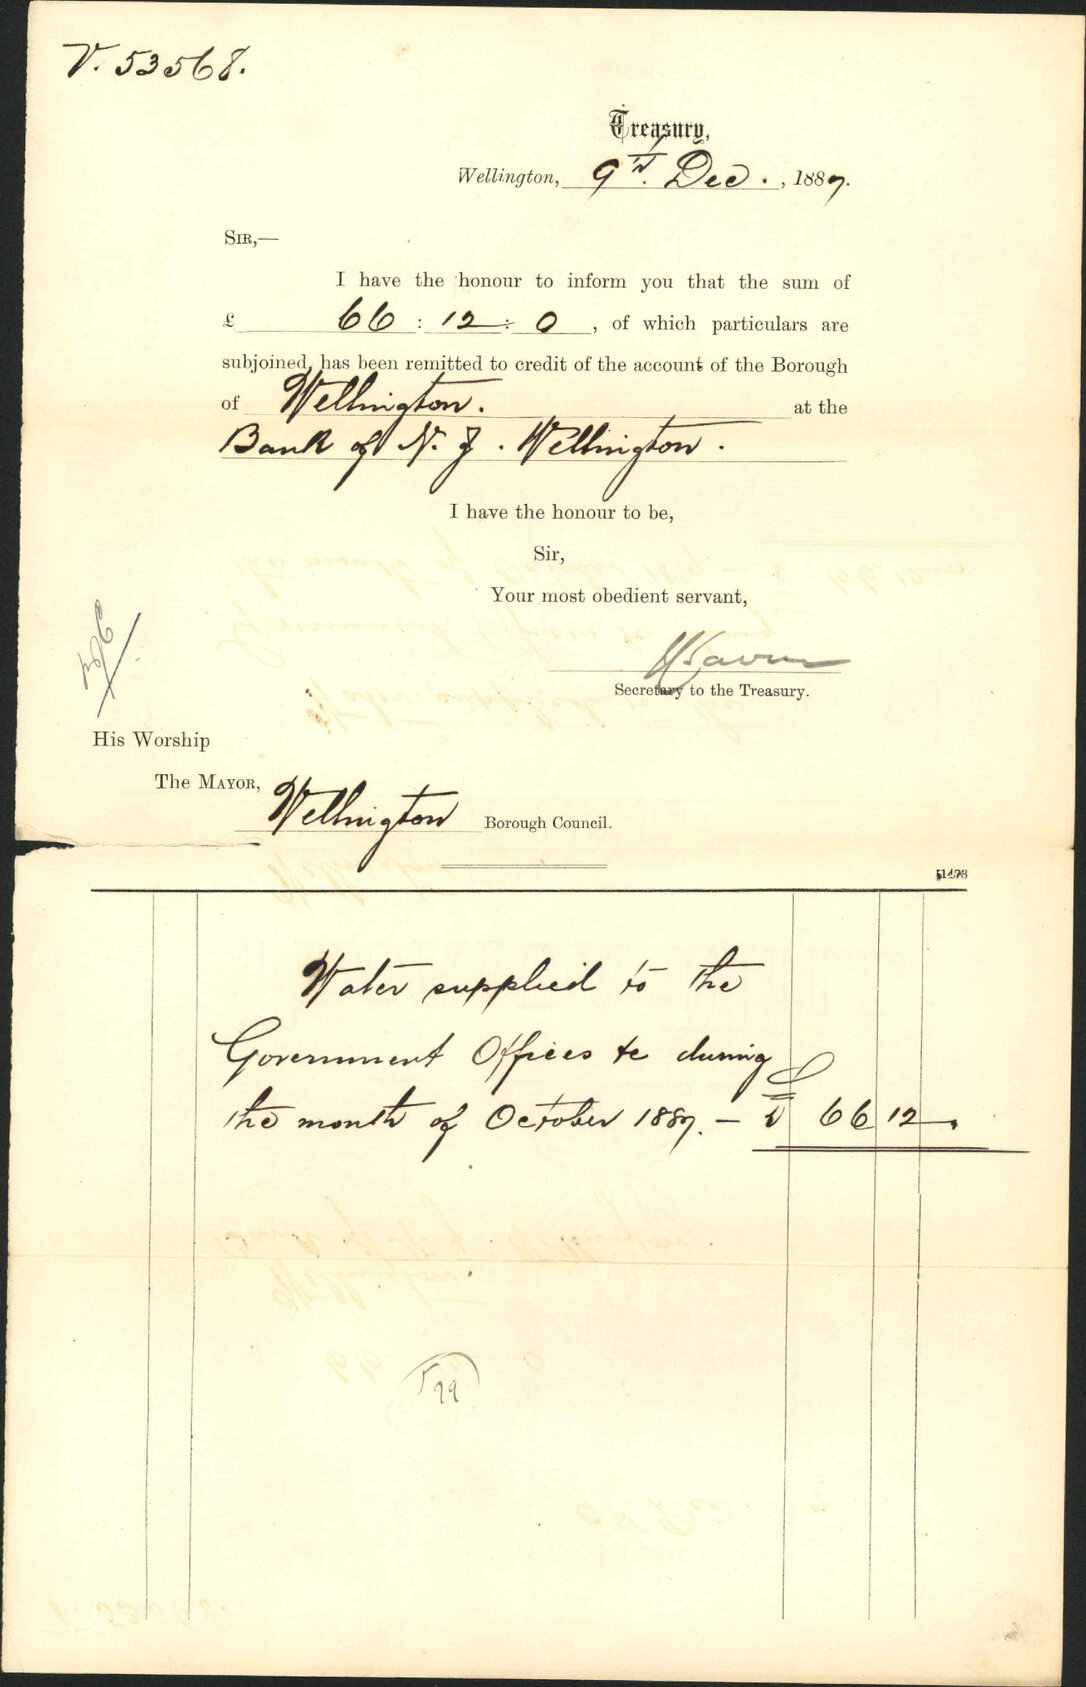 V. 53568.
Treasury,
Wellington, 9th. Dec., 1887.
SIR,—
I have the honour to inform you that the sum of
£ 66 : 12 : 0, of which particulars are
subjoined, has been remitted to credit of the account of the Borough
of Wellington. at the
Bank of N. Z. Wellington.
I have the honour to be,
Sir,
Your most obedient servant,
Secretary to the Treasury.
His Worship
The MAYOR,
Wellington Borough Council.
Water supplied to the
Government Offices &c during
the month of October 1887. — £ 66 12 —.